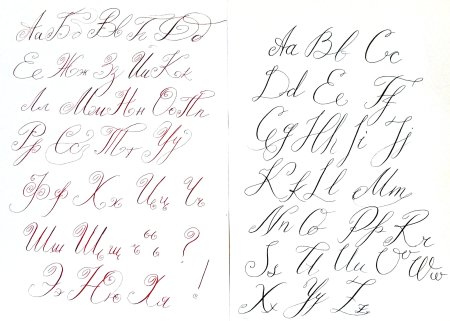 Аа Бб Вв Гг Дд
Ее Жж Зз Ии Кк
Лл Мм Нн Оо Пп
Рр Сс Тт Уу
Фф Хх Цц Чч
Шш Щщ ъ ь ?
Ээ Юю Яя !
Aa Bb Cc
Dd Ee Ff
Gg Hh Ii Jj
Kk Ll Mm
Nn Oo Pp Rr
Ss Tt Uu Vv Ww
Xx Yy Zz